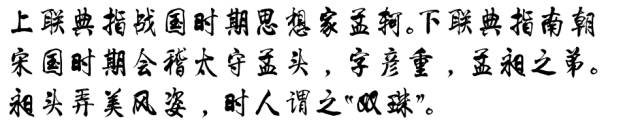 上联典指战国时期思想家孟轲。下联典指南朝
宋国时期会稽太守孟头，字彦重，孟昶之弟。
昶头弄美风姿，时人谓之“双珠”。